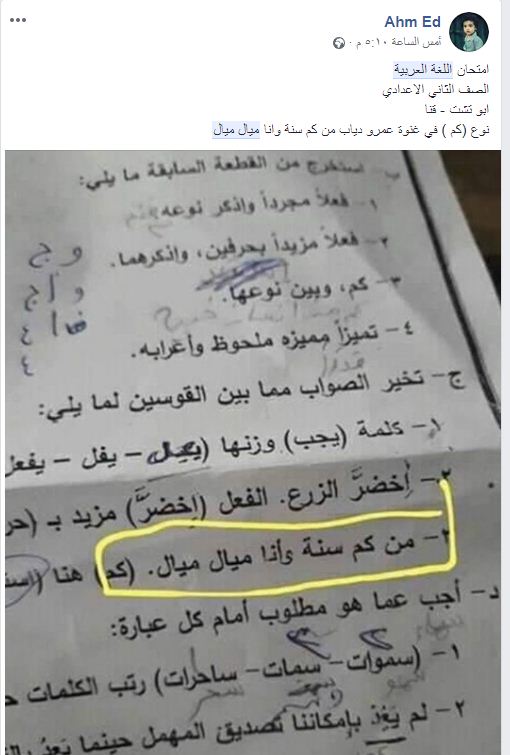 Ahm Ed
أمس الساعة ٥:١٠ م
امتحان اللغة العربية
الصف الثاني الاعدادي
ابو تشت - قنا
نوع (كم ) في غنوة عمرو دياب من كم سنة وانا ميال ميال
ب- استخرج من القطعة السابقة ما يلي:
١- فعلاً مجرداً واذكر نوعه
٢- فعلاً مزيداً بحرفين، واذكرهما.
٣- كم، وبين نوعها.
٤- تمييزاً مميزه ملحوظ وأعرابه.
ج- تخير الصواب مما بين القوسين لما يلي:
١- كلمة (يجب) وزنها (يعل – يفل – يفعل
٢- اخضرَّ الزرع. الفعل (اخضرَّ) مزيد بـ (حر
٣- من كم سنة وأنا ميال ميال. (كم) هنا (است
د- أجب عما هو مطلوب أمام كل عبارة:
١- (سموات– سمات– ساحرات) رتب الكلمات
٢- لم يَعُدْ بإمكاننا تصديق المهمل حينما يَعِدُ